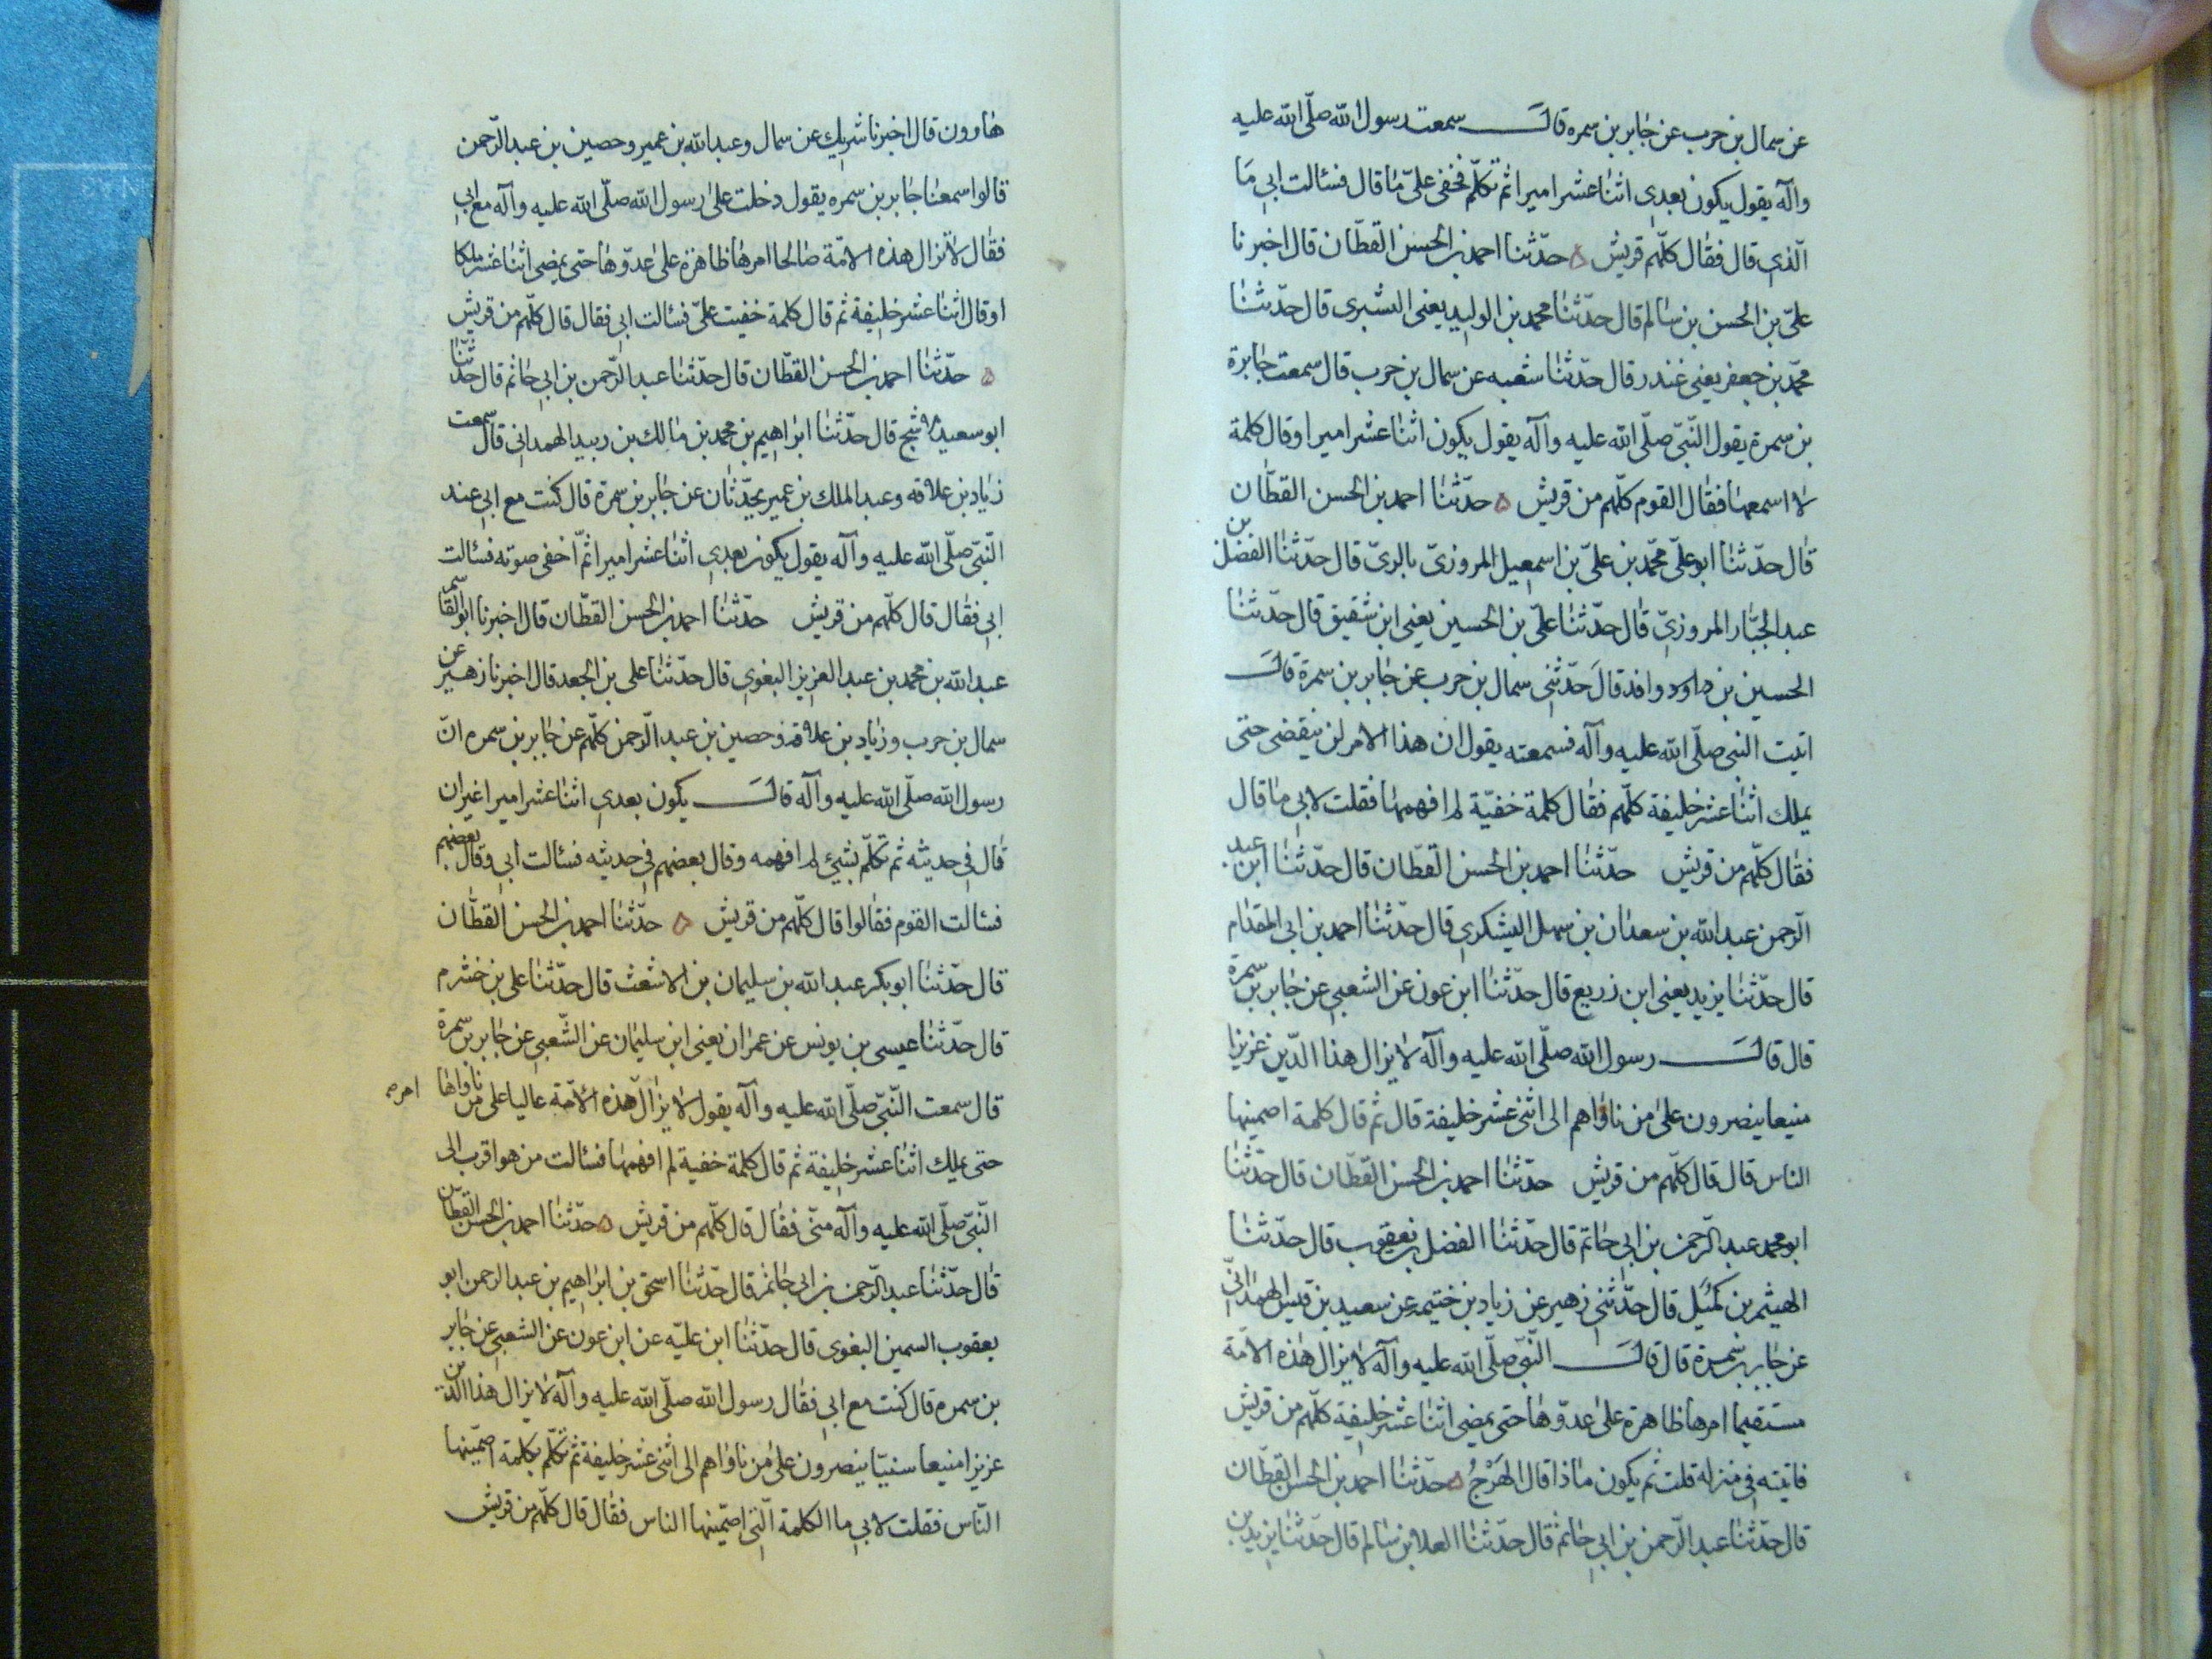 عن سمال بن حرب عن جابر بن سمره قال سمعت رسول الله صلّى الله عليه
وآله يقول يكون بعدي اثنا عشر اميرا ثم تكلّم فخفى علىّ ما قال فسئالت ابي ما
الّذي قال فقال كلّهم قريش ۵ حدّثنا احمد بن الحسن القطّان قال اخبرنا
علىّ بن الحسن بن سالم قال حدّثنا محمد بن الوليد يعني البشرى قال حدّثنا
محمّد بن جعفر يعني غندر قال حدّثنا شعبه عن سمال بن حرب قال سمعت جابرة
بن سمرة يقول النّبىّ صلّى الله عليه وآله يقول يكون اثنا عشر اميرا وقال كلمة
لا اسمعها فقال القوم كلّهم من قريش ۵ حدّثنا احمد بن الحسن القطّان
قال حدّثنا ابو علىّ محمّد بن علىّ بن اسمعيل المروزىّ بالرىّ قال حدّثنا الفضل بن
عبد الجبّار المروزىّ قال حدّثنا علىّ بن الحسين يعني ابن شقيق قال حدّثنا
الحسين بن داود وافد قال حدّثنى سمال بن حرب عن جابر بن سمرة قال
اتيت النبى صلّى الله عليه وآله فسمعته يقول ان هذا الامر لن ينقضى حتى
يملك اثنا عشر خليفة كلّهم فقال كلمة خفيّة لم افهمها فقلت لابى ما قال
فقال كلّهم من قريش حدّثنا احمد بن الحسن القطّان قال حدّثنا ابن عبد
الرّحمن عبد الله بن سعدان بن سهل اليشكرى قال حدّثنا احمد بن ابى المقدام
قال حدّثنا يزيد يعنى ابن زريع قال حدّثنا ابن عون عن الشعبى عن جابر بن سمرة
قال قال رسول الله صلّى الله عليه وآله لا يزال هذا الدّين عزيزا
منيعا ينصرون على من ناواهم الى اثنى عشر خليفة قال ثم قال كلمة اصمينها
الناس قال قال كلّهم من قريش حدّثنا احمد بن الحسن القطّان قال حدّثنا
ابو محمد عبد الرّحمن بن ابى حاتم قال حدّثنا الفضل بن يعقوب قال حدّثنا
الهيثم بن كميل قال حدّثنى زهير عن زياد بن خثيمه عن سعيد بن قيس الهمدانىّ
عن جابر بن سمرة قال قال النّبىّ صلّى الله عليه وآله لا يزال هذه الامّة
مستقيما امرها ظاهرة على عدوّها حتى يمضى اثنا عشر خليفة كلّهم من قريش
فاتيته فى منزله قلت ثم يكون ماذا قال الهَرْجُ ۵ حدّثنا احمد بن الحسن القطّان
قال حدّثنا عبد الرّحمن بن ابى حاتم قال حدّثنا العلا بن سالم قال حدّثنا يزيد بن
هاوون قال اخبرنا شريك عن سمال وعبد الله بن عمير وحصين بن عبد الرّحمن
قالوا سمعنا جابر بن سمره يقول دخلت على رسول الله صلّى الله عليه وآله مع ابى
فقال لا تزال هذه الامّة صالحا امرها ظاهرة على عدوّها حتى يمضى اثنا عشر ملكا
او قال اثنا عشر خليفة ثم قال كلمة خفيت علىّ فسئالت ابى فقال قال كلّهم من قريش
۵ حدّثنا احمد بن الحسن القطّان قال حدّثنا عبد الرّحمن بن ابى حاتم قال حدّثنا
ابو سعيد الاشجّ قال حدّثنا ابراهيم بن محمد بن مالك بن ربيد الهمدانى قال سمعت
زياد بن علاقه وعبد الملك بن عمير يحدّثان عن جابر بن سمرة قال كنت مع ابى عند
النّبىّ صلّى الله عليه وآله يقول يكون بعدى اثنا عشر اميرا ثمّ اخفى صوته فسئالت
ابى فقال قال كلّهم من قريش حدّثنا احمد بن الحسن القطّان قال اخبرنا ابو القاسم
عبد الله بن محمد بن عبد العزيز البغوى قال حدّثنا على بن الجعد قال اخبرنا زهير عن
سمال بن حرب وزياد بن علاقة وحصين بن عبد الرّحمن كلّهم عن جابر بن سمره انّ
رسول الله صلّى الله عليه وآله قال يكون بعدى اثنا عشر اميرا غيران
قال فى حديثه ثم تكلّم بشيئ لم افهمه وقال بعضهم فى حديثه فسئالت ابى وقال بعضهم
فسئالت القوم فقالوا قال كلّهم من قريش ۵ حدّثنا احمد بن الحسن القطّان
قال حدّثنا ابو بكر عبد الله بن سليمان بن الاشعث قال حدّثنا على بن خشرم
قال حدّثنا عيسى بن يونس عن عمران يعنى ابن سليمان عن الشّعبى عن جابر بن سمرة
قال سمعت النّبىّ صلّى الله عليه وآله يقول لا يزال هذه الامّة عاليا على من ناواها
امره
حتى يملك اثنا عشر خليفة ثم قال كلمة خفية لم افهمها فسئالت من هو اقرب الى
النّبىّ صلّى الله عليه وآله منّى فقال قال كلّهم من قريش ۵ حدّثنا احمد بن الحسن القطّان
قال حدّثنا عبد الرّحمن بن ابى حاتم قال حدّثنا اسحق بن ابراهيم بن عبد الرحمن ابو
يعقوب السمين البغوى قال حدّثنا ابن عليّه عن ابن عون عن الشعبى عن جابر
بن سمره قال كنت مع ابى فقال رسول الله صلّى الله عليه وآله لا يزال هذا الدين
عزيزا منيعا سنيّا ينصرون على من ناواهم الى اثنى عشر خليفة ثم تكلّم بكلمة اصمّينها
النّاس فقلت لابى ما الكلمة الّتى اصمّينها الناس فقال قال كلّهم من قريش